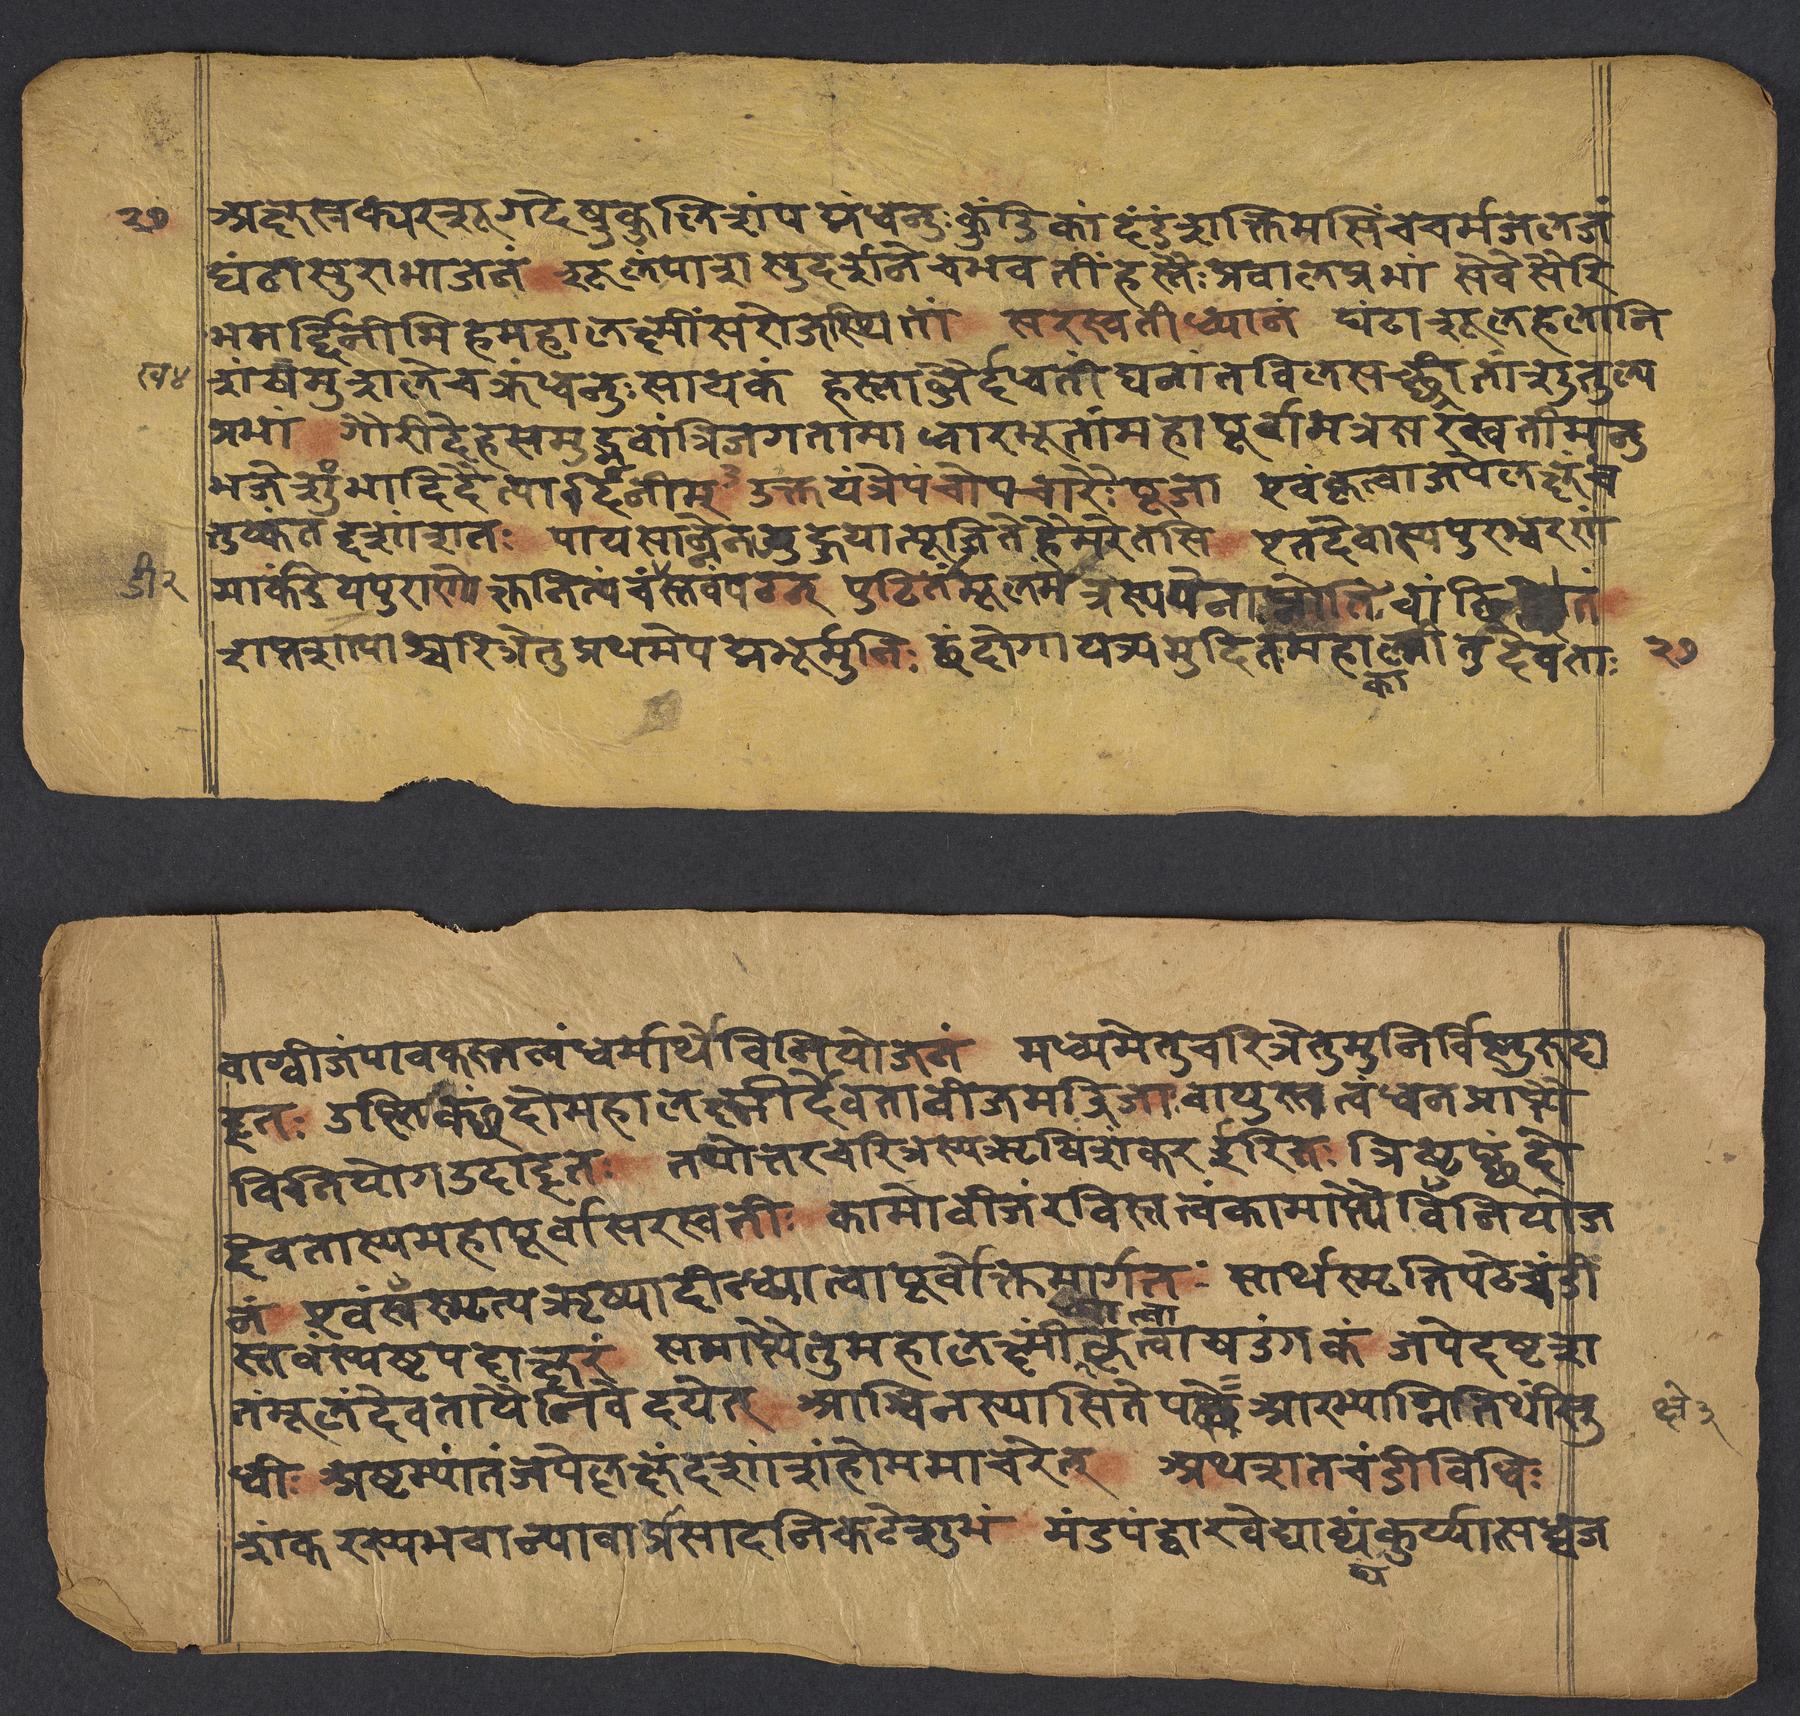 २७
अक्षस्रक्परशूगदेषुकुलिशंपद्मंधनुःकुंडिकांदंडंशक्तिमसिंचचर्मजलजं
घंटांसुराभाजनं शूलंपाशसुदर्शनेचदधतींहस्तैःप्रवालप्रभां सेवेसैरि
भमर्द्दिनीमिहमहालक्ष्मींसरोजस्थितां सरस्वतीध्यानं घंटाशूलहलानि
ख४ शंखमुशलेचक्रंधनुःसायकं हस्ताब्जैर्दधतींघनांतविलसच्छीतांशुतुल्य
प्रभां गौरीदेहसमुद्भवांत्रिजगतामाधारभूतांमहापूर्वामत्रसरस्वतीमनु
भजेशुंभादिदैत्यार्दिनीम् उक्तयंत्रेपंचोपचारैःपूजा एवंकृत्वाजपेलक्षंच
तुष्कंतद्दशांशतः पायसान्नेनजुहुयात्पूजितेहेमरेतसि एतदेवास्यपुरश्चरणं
डी२ मार्कंडेयपुराणोक्तंनित्यंचंस्तवंपठन् पुटितंमूलमंत्रस्य
शप्तशत्याश्चरित्रेतुप्रथमेपद्मभूर्मुनिः छंदोगायत्रमुदितंमहालीतुदेवता
का
२७
वाग्बीजंपावकस्तत्वंधर्मार्थेविनियोजनं मध्यमेतुचरित्रेतुमुनिर्विष्णुरुदा
हृतः उष्णिक्छंदोमहालक्ष्मीर्देवताबीजमद्रिजा वायुस्तत्वंधनप्राप्त्यै
विनियोगउदाहृतः तथोत्तरचरित्रस्यऋषिःशंकरईरितः त्रिष्टुप्छंदो
देवतास्यमहापूर्वासरस्वती कामोबीजंरविस्तत्वंकामाप्त्यैविनियोज
नं एवंसंस्मृत्यऋष्यादीन्ध्यात्वापूर्वोक्तमार्गतः सार्थस्मृतिपठेच्चंडी
स्तवंस्पष्टपदाक्षरं समाप्त्यैतुमहालक्ष्मींकृत्वाषडंगकं जपेदष्टश
तंमूलंदेवतायैनिवेदयेत् आश्विनस्यासितेपक्षे आरभ्याग्नितिथिंसु
क्षे३
धीः अष्टम्यांतंजपेलक्षंदशांशंहोममाचरेत् अथशतचंडीविधिः
शंकरस्यभवान्यावाप्रसादनिकटेशुभं मंडपंद्वारवेद्याढ्यंकुर्य्यात्सध्वज